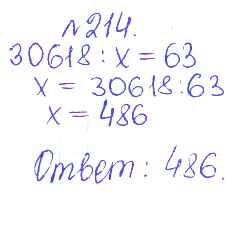 №214.
30618 : x = 63
x = 30618:63
x = 486
Ответ: 486.